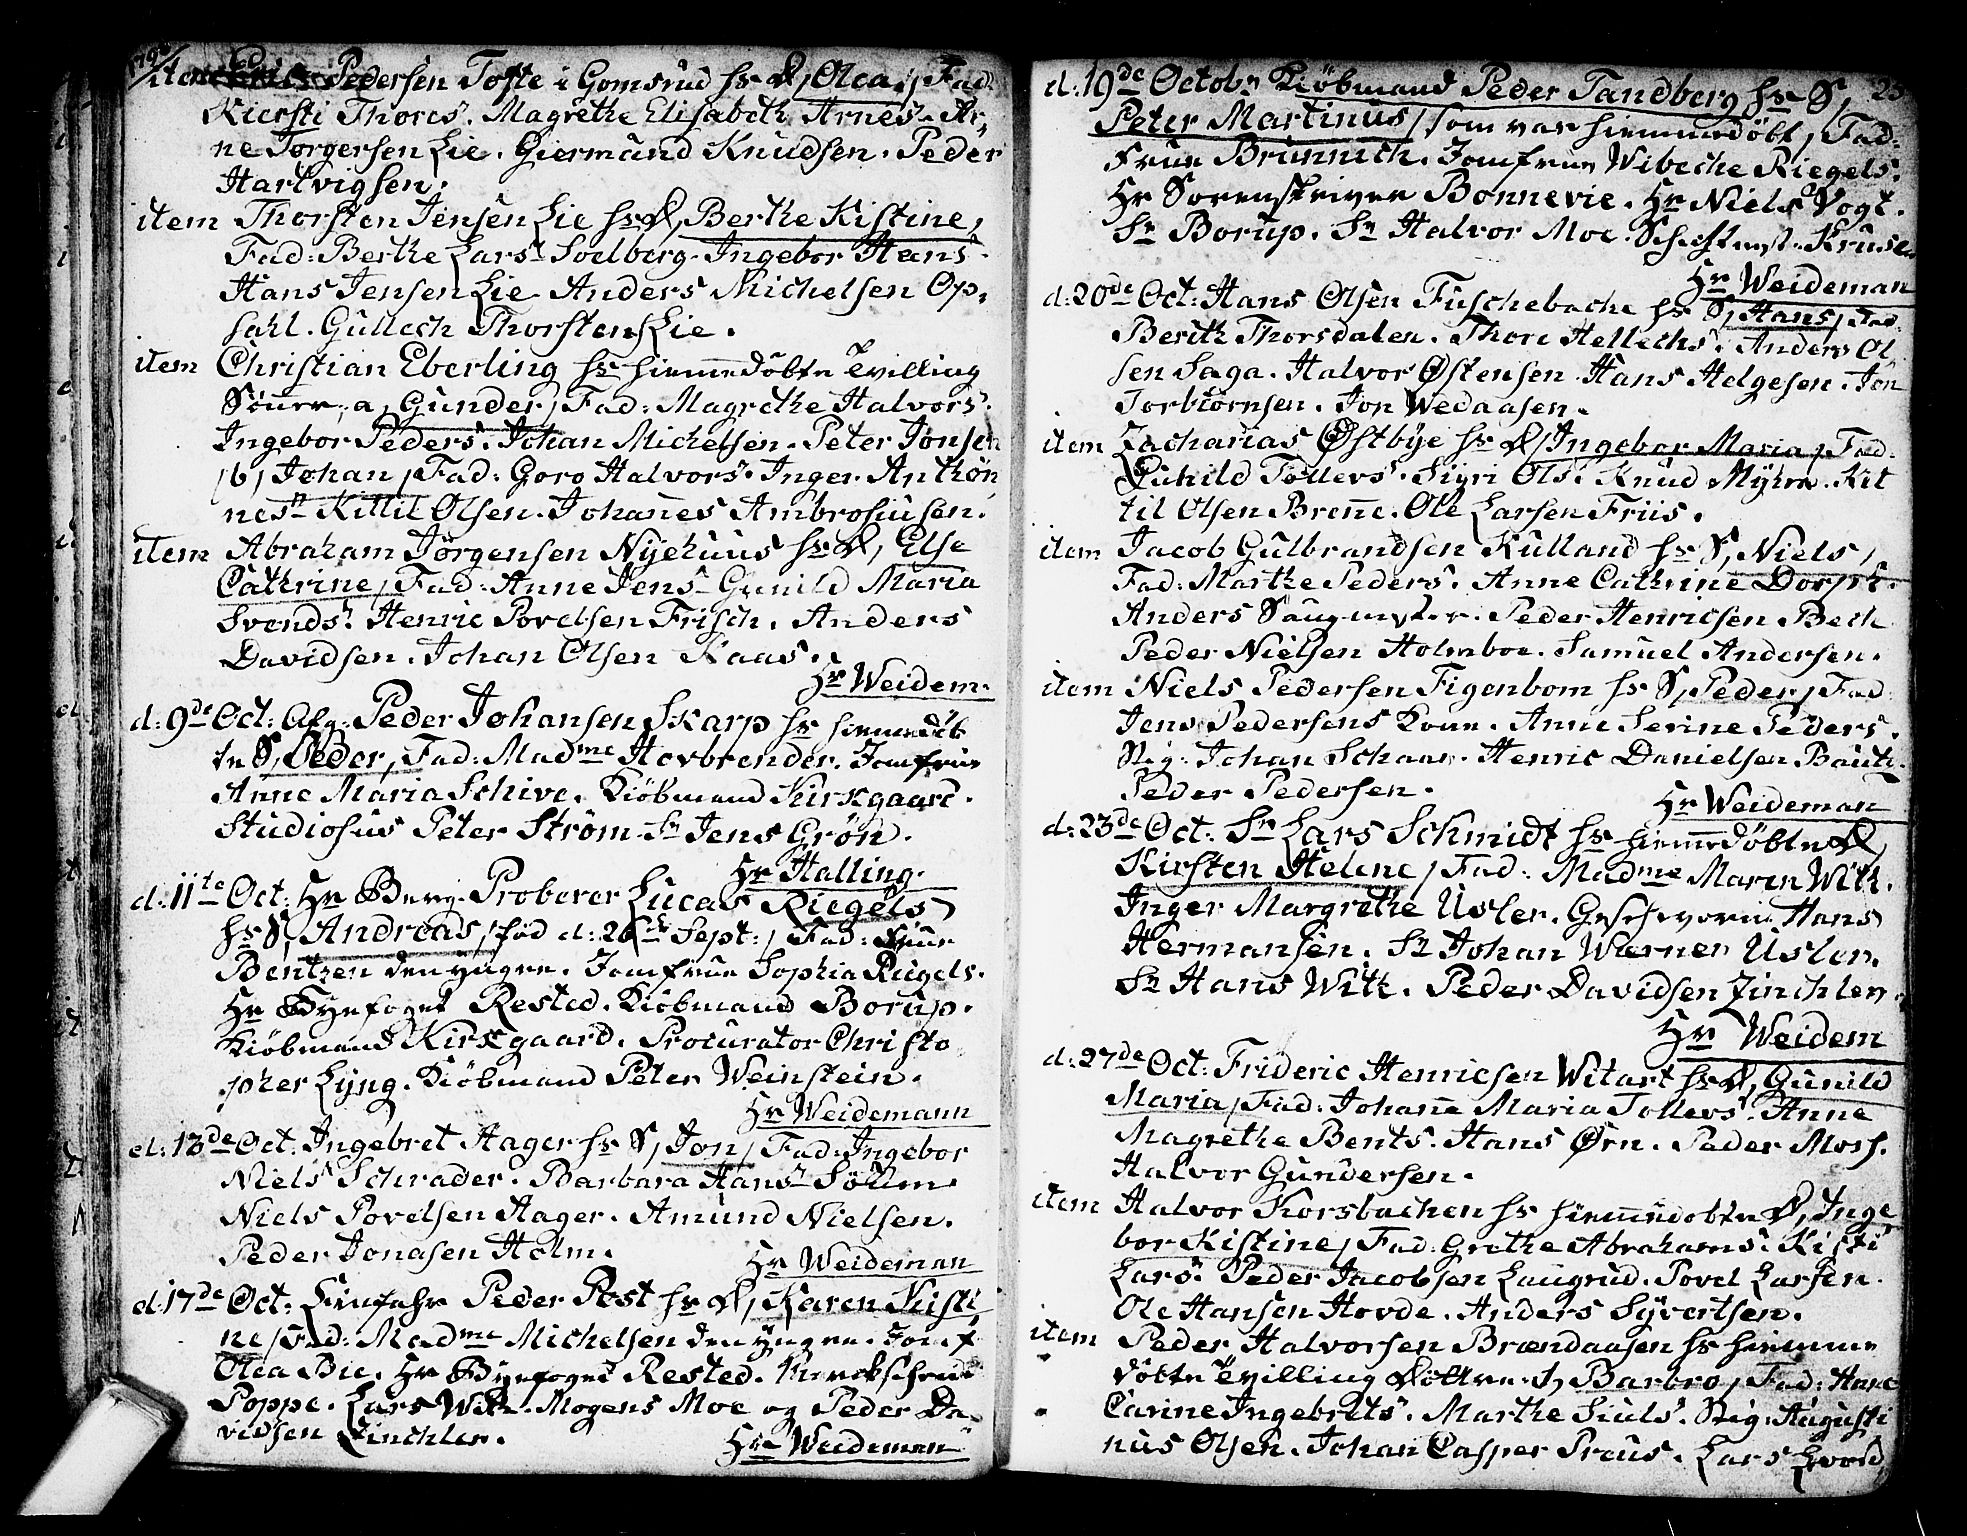 item Pedersen Tofte i Gomsrud hs D, Olea, Fad:
Kiersti Thores. Magrethe Elisabeth Arnes. Ar,
ne Torgersen Lie. Giermund Knudsen. Peder
Hartvigsen.
item Thorsten Jensen Lie hs D, Berthe Kistine,
Fad: Berthe Lars Soelberg. Ingebor Hans
Hans Jensen Lie Anders Michelsen Op,
sahl. Gullech Thorstens. Lie.
item Christian Eberling hs hiemedöbte Tvilling
Sönner, a, Gunder, Fad: Magrethe Halvors.
Ingebor Peders. Johan Michelsen. Peter Jonsen
/b, Johan, Fad: Goro Halvors. Inger Anthön,
nes Kittil Olsen. Johanes Ambrosiusen.
item Abraham Jörgensen Nyehuus hs D, Else
Cathrine, Fad: Anne Jens Gunild Maria
Svends. Henric Povelsen Frisch. Anders
Davidsen. Johan Olsen Kaas.
Hr Weidem.
d: 9de Oct: Afg: Peder Johansen Skarp hs hiemedöb
te S, Peder, Fad: Madme Hovbrender. Jomfrue
Anne Maria Schive. Kiöbmand Kirkgaard.
Studiosus Peter Ström. Sr Jens Grön.
Hr Halling.
d: 11te Oct: Hr Berg-Proberer Lucas Riegels
hs S, Andreas, föd d: 26de Sept:, Fad: Frue
Bentzen den yngre. Jomfrue Sophia Riegels.
Hr Byefoget Rested. Kiöbmand Borup.
Kiöbmand Kirkgaard. Procurator Christo
pher Lyng. Kiöbmand Peter Weinstein.
Hr Weidemann
d: 13de Oct: Ingebret Hager hs S, Jon, Fad: Ingebor
Niels Schrader. Barbara Hans
Niels Povelsen Hager. Amund Nielsen.
Peder Jonasen Holm.
Hr Weideman
d: 17de Oct: Peder Post hs D, Karen Kisti
ne, Fad: Madme Michelsen den yngre. Jomf
Olea Bie. Hr Byefoget Rested.
Poppe. Lars Witt. Mogens Moe og Peder Da,
vidsen Zinchler.
Hr Weideman
d: 19de Octobr Kiöbmand Peder Tandberg hs S, 25
Peter Martinus, som var hiemmedöbt, Fad:
Frue Brünnich. Jomfrue Wibeche Riegels.
Hr Sorenskriver Bonnevie. Hr Niels Vogt.
Sr Borup. Sr Halvor Moe. Kruse
Hr Weideman
d: 20de Oct: Hans Olsen Fuschebache hs S, Hans, Fad:
Berith Thorsdalen. Thore Hellechs. Anders Ol,
sen Saga. Halvor Østensen Hans Helgesen. Jon
Torbiörnsen. Jon Wedaasen.
item Zacharias Østbye hs D, Ingebor Maria, Fad:
Gunhild Tollevs. Sigri Ols. Knud Myhra. Kit
til Olsen Brenne. Ole Larsen Friis.
item Jacob Gulbrandsen Kulland hs S, Niels,
Fad: Marthe Peders. Anne Cathrine Dorph.
Anders Saugmester. Peder Henricsen Bech
Peder Nielsen Holmboe. Samuel Andersen.
item Niels Pedersen Figenbom hs S, Peder, Fad:
Jens Pedersens Kone. Anne Serine Peders.
Stig: Johan Schaar. Henric Danielsen Bauth.
Peder Pedersen.
Hr Weideman
d: 23de Oct: Sr Lars Schmidt hs hiemedöbte D,
Kirsten Helene, Fad: Madme Maren Witt.
Inger Margrethe Usler. Geschworen Hans
Hermansen. Sr Johan Werner Usler.
Sr Hans Witt. Peder Davidsen Zinchler.
Hr Weidem
d: 27de Oct: Frideric Henricsen Witart hs D, Gunild
Maria, Fad: Johane Maria Tollevs. Anne
Magrethe Bents. Hans Ørn. Peder Moss.
Halvor Gundersen.
item Halvor Korsbachen hs hiemmedobte D, Inge
bor Kistine, Fad: Grethe Abrahams. Kisti
Lars. Peder Jacobsen Laugrud. Povel Larsen.
Ole Hansen Hovde. Anders Syvertsen.
item Peder Halvorsen Brændaasen hs hiemme
döbte Tvilling Döttre. Barbro, Fad: Hane
Carine Ingebrets. Marthe Siuls. Stig: Augusti
nus Olsen. Johan Casper Preus. Lars Hvord